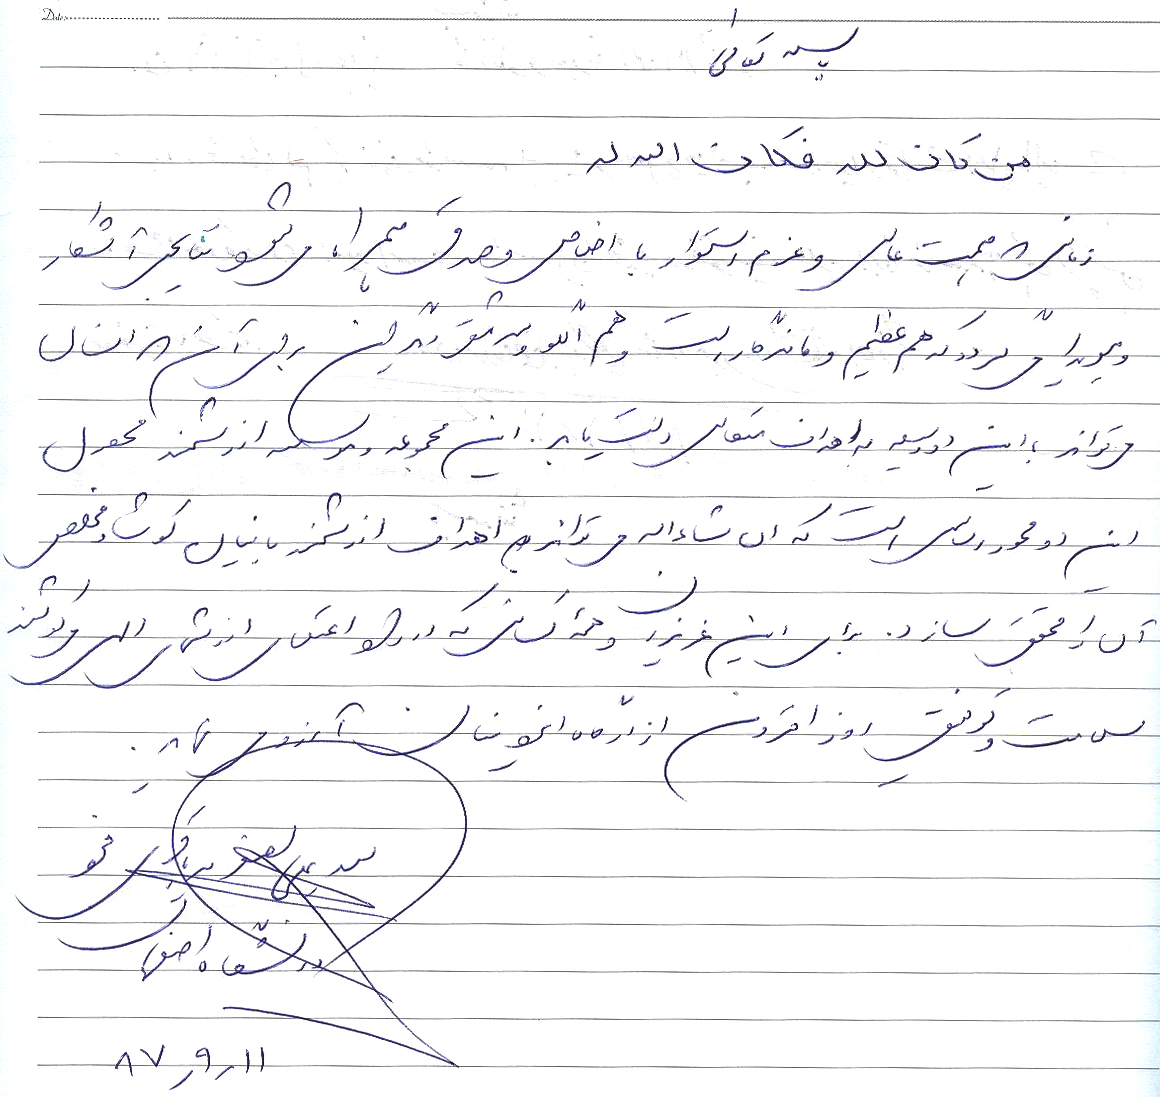 Date
بسمه تعالی
من کان لله فکان الله له
زمانی همت عالی و عزم استوار با اخلاص و صدق همراه می شود نتایجی آشکار
و هویدا می گردد که هم عظیم و ماندگار است و هم الگو و سرمشق دیگران برای آن انسان
می تواند با این دو وسیله به اهداف متعالی دست یابد. این مجموعه و موسسه ارزشمند محصول
این دو محور اساسی است که ان شاءاله می تواند اهداف ارزشمند بانیان کوشا و مخلص
آن را محقق سازد. برای این عزیزان و همه کسانی که در راه اعتلای ارزشهای الهی می کوشند
سلامت و توفیق روز افزون از درگاه ایزد منان آرزو می نمایم.
سید علی اصغر
دانشگاه اصفهان
۸۷٫۹٫۱۱